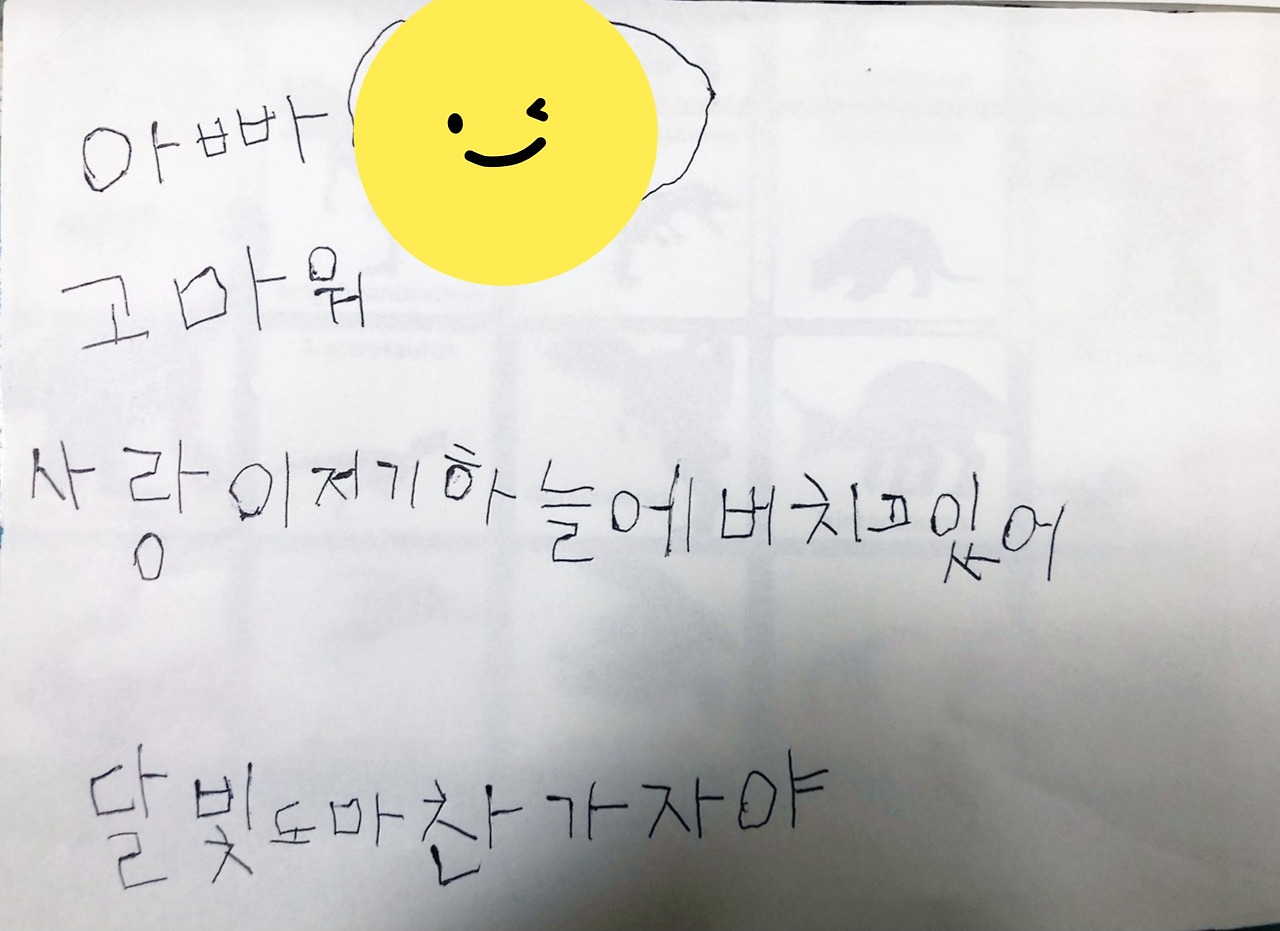 아빠
고마워
사랑이저기하늘에버치고있어
달빛도마찬가자야